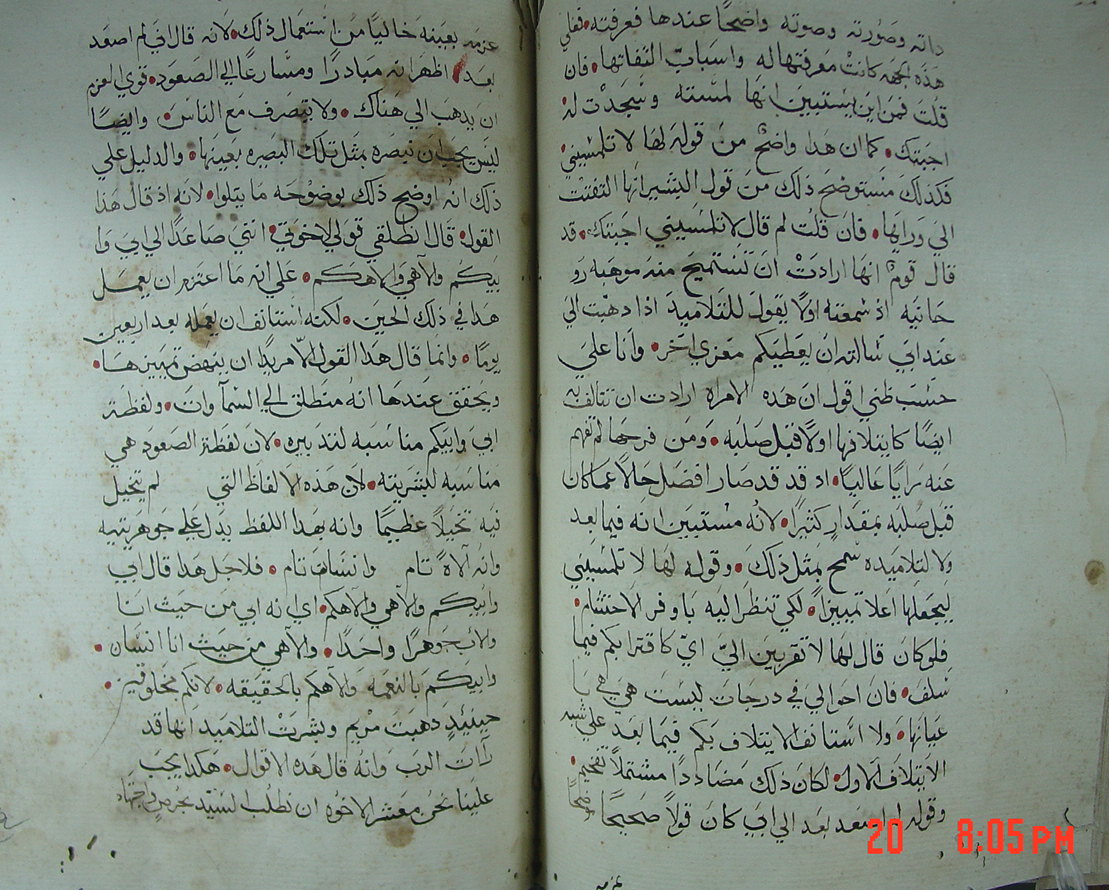 داته وصورته وصوته واضحًا عندها فعرفته، فعلي
هذه الجهه كانت معرفتها له واسباب التفاتها، فان
قلت فمن اين يستبين انها لمسته وسجدت له
اجبتك، كما ان هدا واضح من قوله لها لا تلمسيني
فكذلك مستوضح ذلك من قول البشير انها التفتت
الي ورايها، فان قلت لم قال لا تلمسيني اجبتك، قد
قال قوم انها ارادت ان تستميح منه موهبه رو
حانيه اذ سمعته اولا يقول للتلاميد اذا دهبت الي
عند ابي سالته ان يعطيكم معزي اخر، وانا علي
حسب ظني اقول ان هده الامراه ارادت ان تتالف به
ايضًا كايتلافها اولا قبل صلبه، ومن فرحها لم تفهم
عنه رايًا عاليًا، اد قد قد صار افضل حالا عما كان
قبل صلبه بمقدار كثير، لانه مستبين انه فيما بعد
ولا لتلاميده سمح بمثل ذلك، وقوله لها لا تلمسيني
ليجعلها اعلا تمييزًا، لكي تنظر اليه باوفر الاحتشام،
فلو كان قال لها لا تقربين الي اي كاقترابكم فيما
سلف، فان احوالي في درجات ليست هي هي با
عيانها، ولا استانف الايتلاف بكم فيما بعد علي شبه
الايتلاف الاول، لكان ذلك مضاددًا مشتملاً تفخيم،
وقوله لم اصعد بعد الي ابي كان قولا صحيحًا واضحًا
عزمه
عزمه بعينه خاليًا من استعمال ذلك، لانه قال اني لم اصعد
بعد، اظهر انه مبادرًا ومسارعًا الي الصعود، قوي العزم
ان يدهب الي هناك، ولا يتصرف مع الناس، وايضًا
ليس يجب ان تبصره بمثل تلك البصره بعينها، والدليل علي
ذلك انه اوضح ذلك بوضوحه ما يتلوا، لانه اذ قال هدا
القول، قال انطلقي قولي لاخوتي، انني صاعدًا الي ابي وا
بيكم والاهي والاهكم، علي انه ما اعتزم ان يعمل
هدا في ذلك الحين، لكنه استانف ان يعمله بعد اربعين
يومًا، وانما قال هدا القول الا مريدًا ان ينهض تمييزها،
ويحقق عندها انه منطلق الي السماوات، ولفظة
ابي وابيكم مناسبه لتدبيره، لان لفظة الصعود هي
مناسبه لبشريته، لان هده الالفاظ التي لم يتخيل
فيه تخيلاً عظيمًا وانه بهدا اللفظ يدل علي جوهريتيه
وانه الاهً تام وانسان تام، فلاجل هدا قال ابي
وابيكم والاهي والاهكم، اي انه ابي من حيث انا
والاب جوهرًا واحدًا، والاهي من حيث انا انسان،
وابيكم بالنعمه والاهكم بالحقيقه، لانكم مخلوقين،
حينيدٍ دهبت مريم وبشرت التلاميد انها قد
رات الرب وانه قال هده الاقوال، هكدا يجب
علينا نحن معشر الاخوه ان نطلب لسيد بحرص واجتهاد
20 8:05 PM